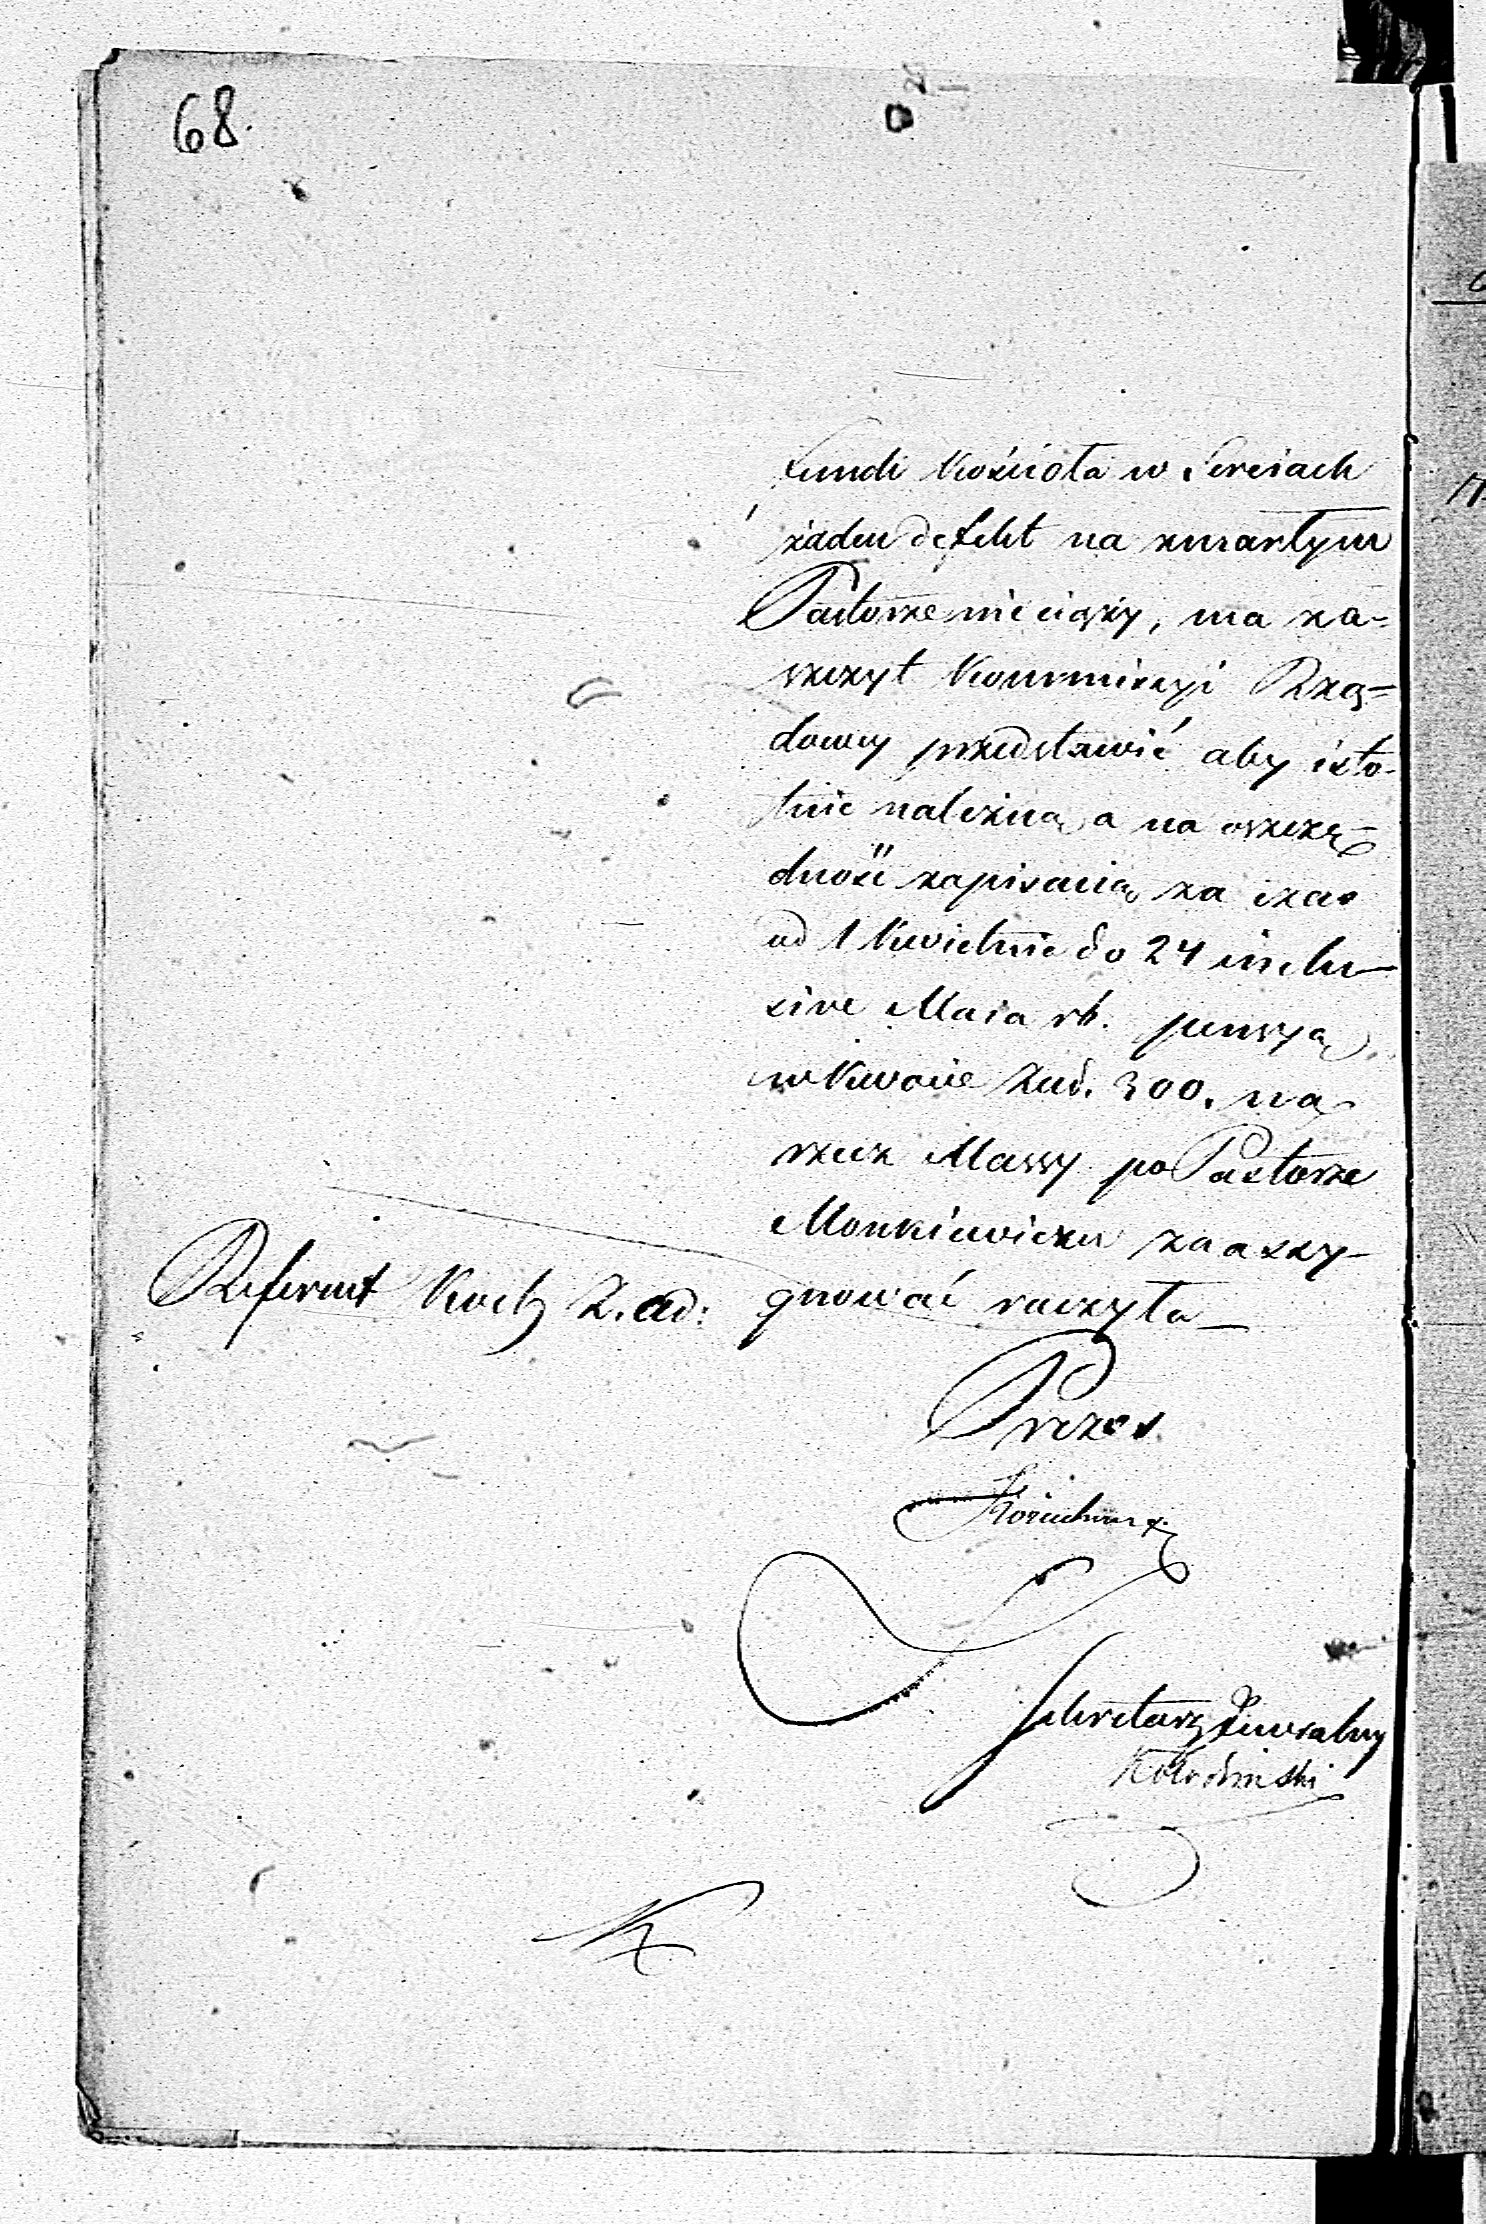 68.
fundi Kościoła w Sereiach
żaden defekt na zmarłym
Pastorze nie ciąży, ma za-
szczyt Kommissyi Rzą-
dowey przedstawić aby isto-
tnie należną a na oszczę-
dność zapisaną za czas
od 1 Kwietnia do 24 inclu-
sive Maia rb. pensyą
w kwocie Złtd. 300. na
rzecz Massy po Pastorze
Monkiewiczu zaassy-
gnować raczyła
Referent Koch Z. ad:
Prezes
Sekretarz Jeneralny